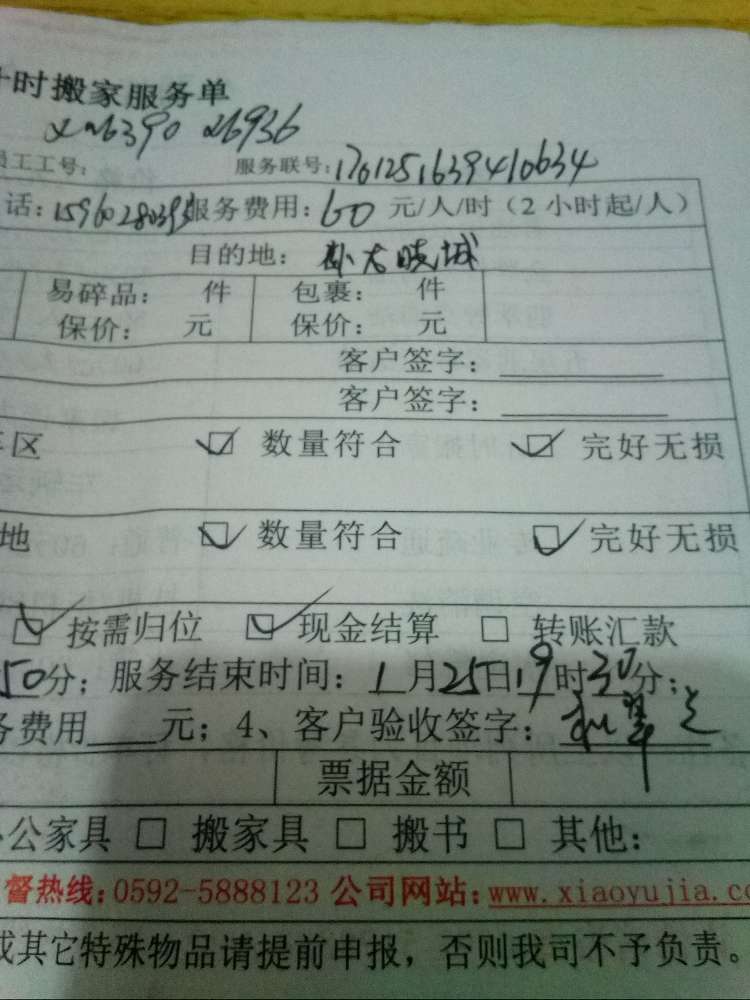 计时搬家服务单
xm6390 26936
员工工号: 服务联号:1701251639410634
话:15960280393服务费用:60元/人/时(2小时起/人)
目的地:
易碎品: 件 包裹: 件
保价: 元 保价: 元
客户签字:
客户签字:
区 ☑ 数量符合 ☑ 完好无损
地 ☑ 数量符合 ☑ 完好无损
☑ 按需归位 ☑ 现金结算 □ 转账汇款
50分;服务结束时间:1月25日19时30分;
务费用____元;4、客户验收签字:
票据金额
公家具 □ 搬家具 □ 搬书 □ 其他:
督热线:0592-5888123 公司网站:www.xiaoyujia.co
或其它特殊物品请提前申报,否则我司不予负责。